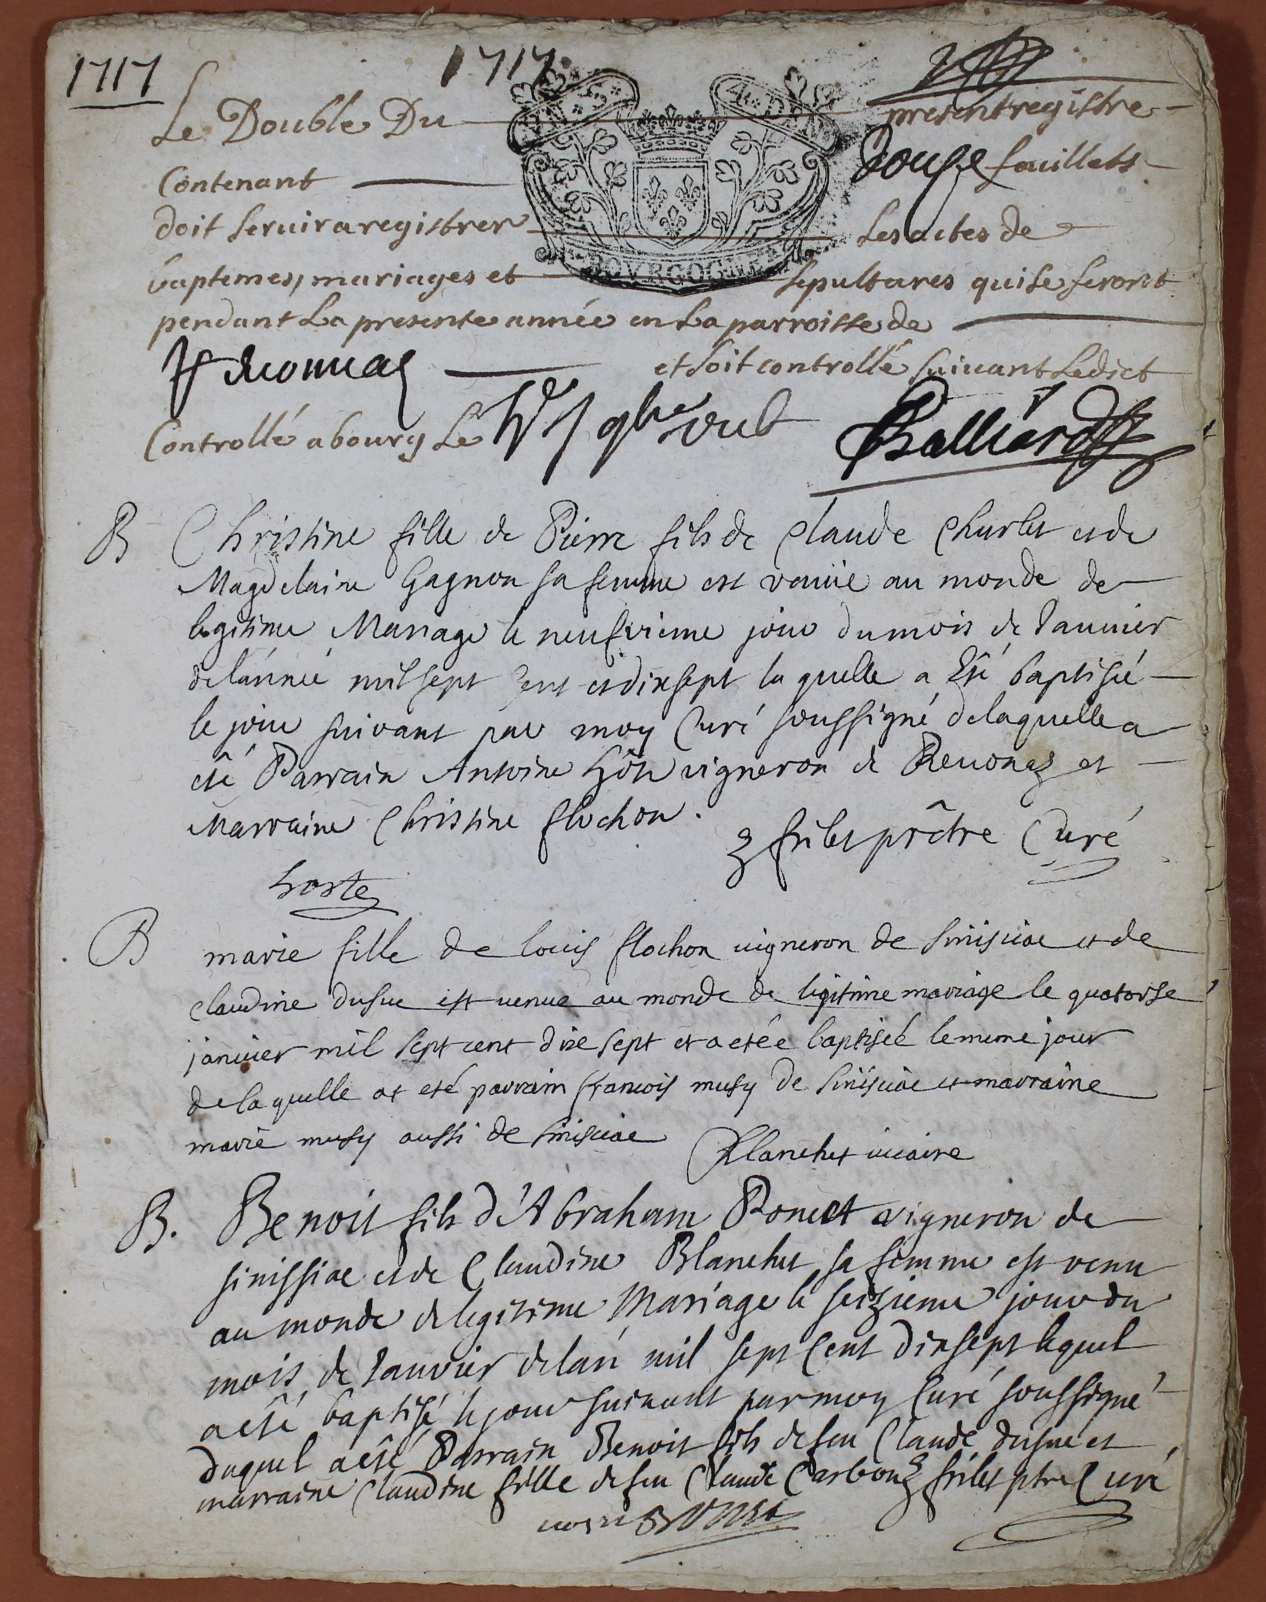 1717 1717
Le Double Du present registre
Contenant Douze feuillets
doit servir a registrer Les actes de
baptemes, mariages et sepultures qui se feront
pendant La presente année en La parroisse de
et soit controllé suivant Ledict
Controllé a bourg Le
BOVRGOGNE
B Christine fille de Pierre fils de Claude Charlet et de
Magdelaine Gagnon sa femme est venüe au monde de
legitime Mariage le neufvieme jour du mois de Januier
de lánneé mil sept cent et dixsept la quelle a Eté baptisée
le jour suivant par moy Curé soussigné de laquelle a
eté Parrain Antoine hôte vigneron de Reuonaz et
Marraine Christine flochon.
frilet prêtre Curé
hoste
B marie fille de louis flochon uigneron de sinissiac et de
claudine dusue est venue au monde de legitime mariage le quatorse
januier mil sept cent dixe sept et a etée baptiseé le meme jour
de la quelle at eté parrain francois musy de sinissiac et marraine
marie musy aussi de sinissiac Planchet uicaire
B. Benoit fils d'Abraham Ronet vigneron de
sinissiac et de Claudine Blanchet sa femme est venu
au monde de legitime Mariage le seizieme jour du
mois de Janvier de lan mil sept Cent dixsept lequel
a eté baptisé le jour suivant par moy Curé soussigné
duquel a eté Parrain Benoit fils de feu Claude dusué et
marraine Claudine fille de feu Claude Carbon frilet ptre Curé